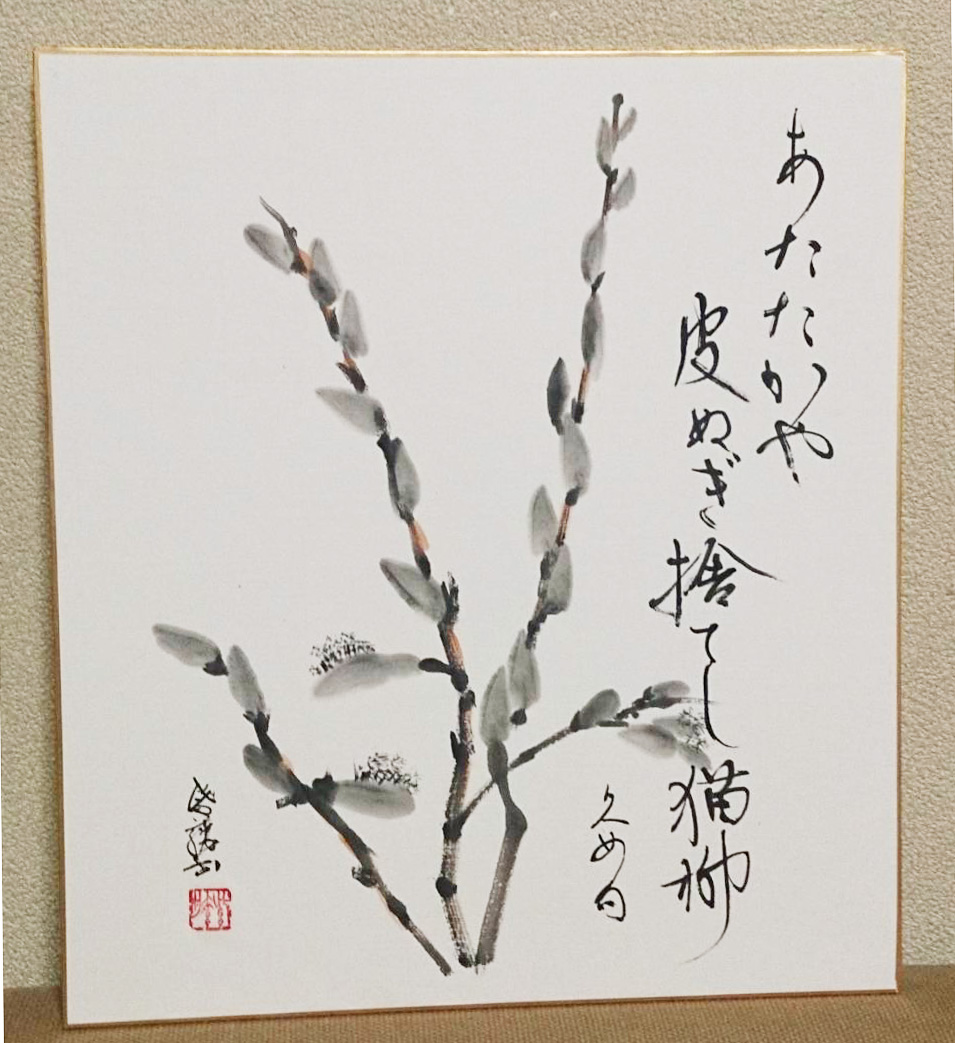 あたたかや
皮ぬぎ捨てし猫柳
久め句